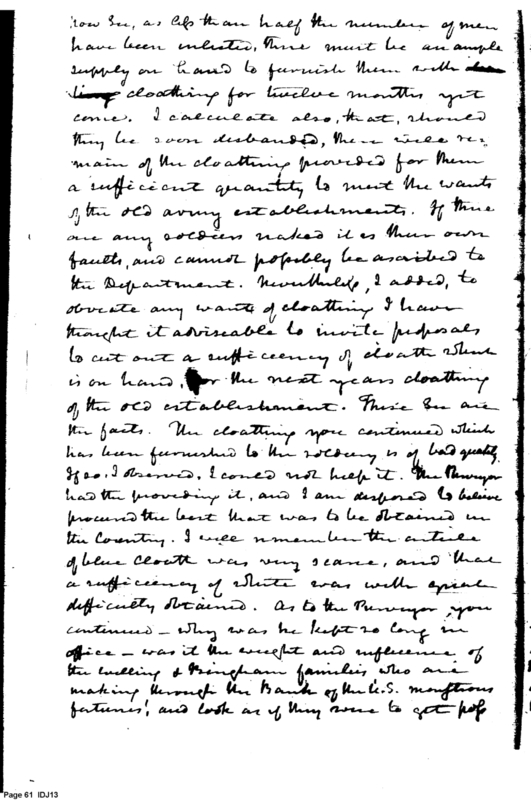 now Sir, as less than half the number of men
have been enlisted, there must be an ample
supply on hand to furnish them with
cloathing for twelve months yet
come. I calculate also, that, should
they be soon disbanded, there will re-
main of the cloathing provided for them
a sufficient quantity to meet the wants
of the old army establishments. If there
are any soldiers naked it is their own
faults, and cannot possibly be ascribed to
the Department. Nevertheless, I added, to
obviate any wants of cloathing I have
thought it adviseable to invite proposals
to cut out a sufficiency of cloath which
is on hand, for the next years cloathing
of the old establishment. These Sir are
the facts. The cloathing you continued which
has been furnished to the soldiery is of bad quality.
If so, I observed, I could not help it. The Purveyor
had the providing it, and I am disposed to believe
procured the best that was to be obtained in
the Country. I well remember the article
of blue cloath was very scarce, and that
a sufficiency of white was with great
difficulty obtained. As to the Purveyor you
continued - why was he kept so long in
office - was it the weight and influence of
the Willing & Bingham families who are
making through the Bank of the U.S. monstrous
fortunes', and look as if they were to get poss
Page 61 IDJ13